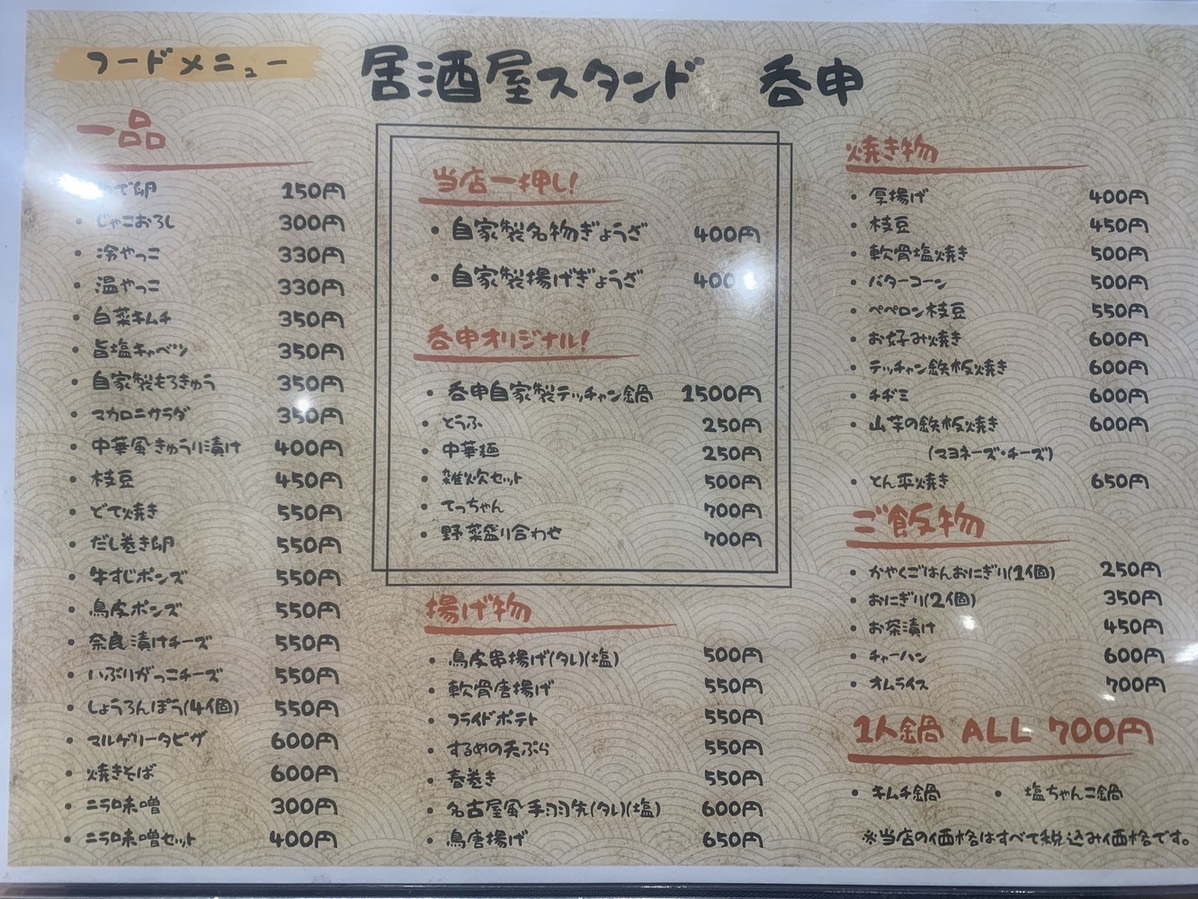 フードメニュー
居酒屋スタンド 呑申
一品
で卵 150円
・じゃこおろし 300円
・冷やっこ 330円
・温やっこ 330円
・白菜キムチ 350円
・旨塩キャベツ 350円
・自家製もろきゅう 350円
・マカロニサラダ 350円
・中華風きゅうり漬け 400円
・枝豆 450円
・どて焼き 550円
・だし巻き卵 550円
・牛すじポンズ 550円
・鳥皮ポンズ 550円
・奈良漬けチーズ 550円
・いぶりがっこチーズ 550円
・しょうろんぽう(4個) 550円
・マルゲリータピザ 600円
・焼きそば 600円
・ニラ味噌 300円
・ニラ味噌セット 400円
当店一押し!
・自家製名物ぎょうざ 400円
・自家製揚げぎょうざ 400
呑申オリジナル!
・呑申自家製テッチャン鍋 1500円
・とうふ 250円
・中華麺 250円
・雑炊セット 500円
・てっちゃん 700円
・野菜盛り合わせ 700円
揚げ物
・鳥皮串揚げ(タレ)(塩) 500円
・軟骨唐揚げ 550円
・フライドポテト 550円
・するめの天ぷら 550円
・春巻き 550円
・名古屋風手羽先(タレ)(塩) 600円
・鳥唐揚げ 650円
焼き物
・厚揚げ 400円
・枝豆 450円
・軟骨塩焼き 500円
・バターコーン 500円
・ペペロン枝豆 550円
・お好み焼き 600円
・テッチャン鉄板焼き 600円
・チヂミ 600円
・山芋の鉄板焼き 600円
(マヨネーズ・チーズ)
・とん平焼き 650円
ご飯物
・かやくごはんおにぎり(1個) 250円
・おにぎり(2個) 350円
・お茶漬け 450円
・チャーハン 600円
・オムライス 700円
1人鍋 ALL 700円
・キムチ鍋 ・塩ちゃんこ鍋
※当店の価格はすべて税込み価格です。